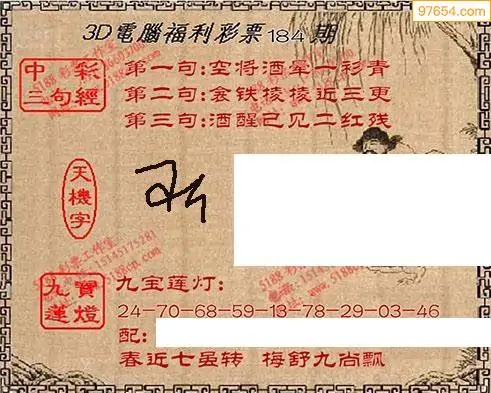 97654.com
3D電腦福利彩票184期
中彩
三句經
第一句:空将酒晕一衫青
第二句:衾铁棱棱近三更
第三句:酒醒已见二红残
天機字
5188 彩票工作室
15145175281
九寳
蓮燈
九宝莲灯:
24-70-68-59-13-78-29-03-46
配:
春近七虽转 梅舒九尚飘